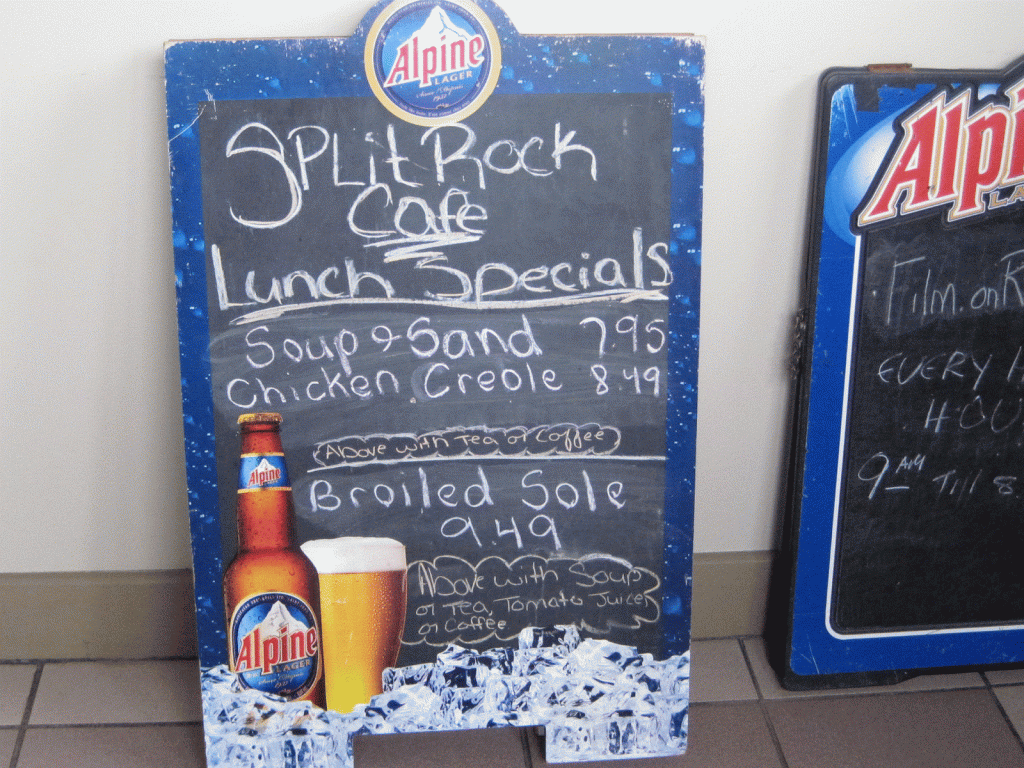 Alpine
LAGER
SPLit Rock
Cafe
Lunch Specials
Soup & Sand 7.95
Chicken Creole 8.49
Above with Tea or Coffee
Broiled Sole
9.49
Above with Soup
or Tea, Tomato Juice
or Coffee
Alpine
Alpine
LAGER
Alpi
LA
Film on R
EVERY H
HOU
9 AM Till 8